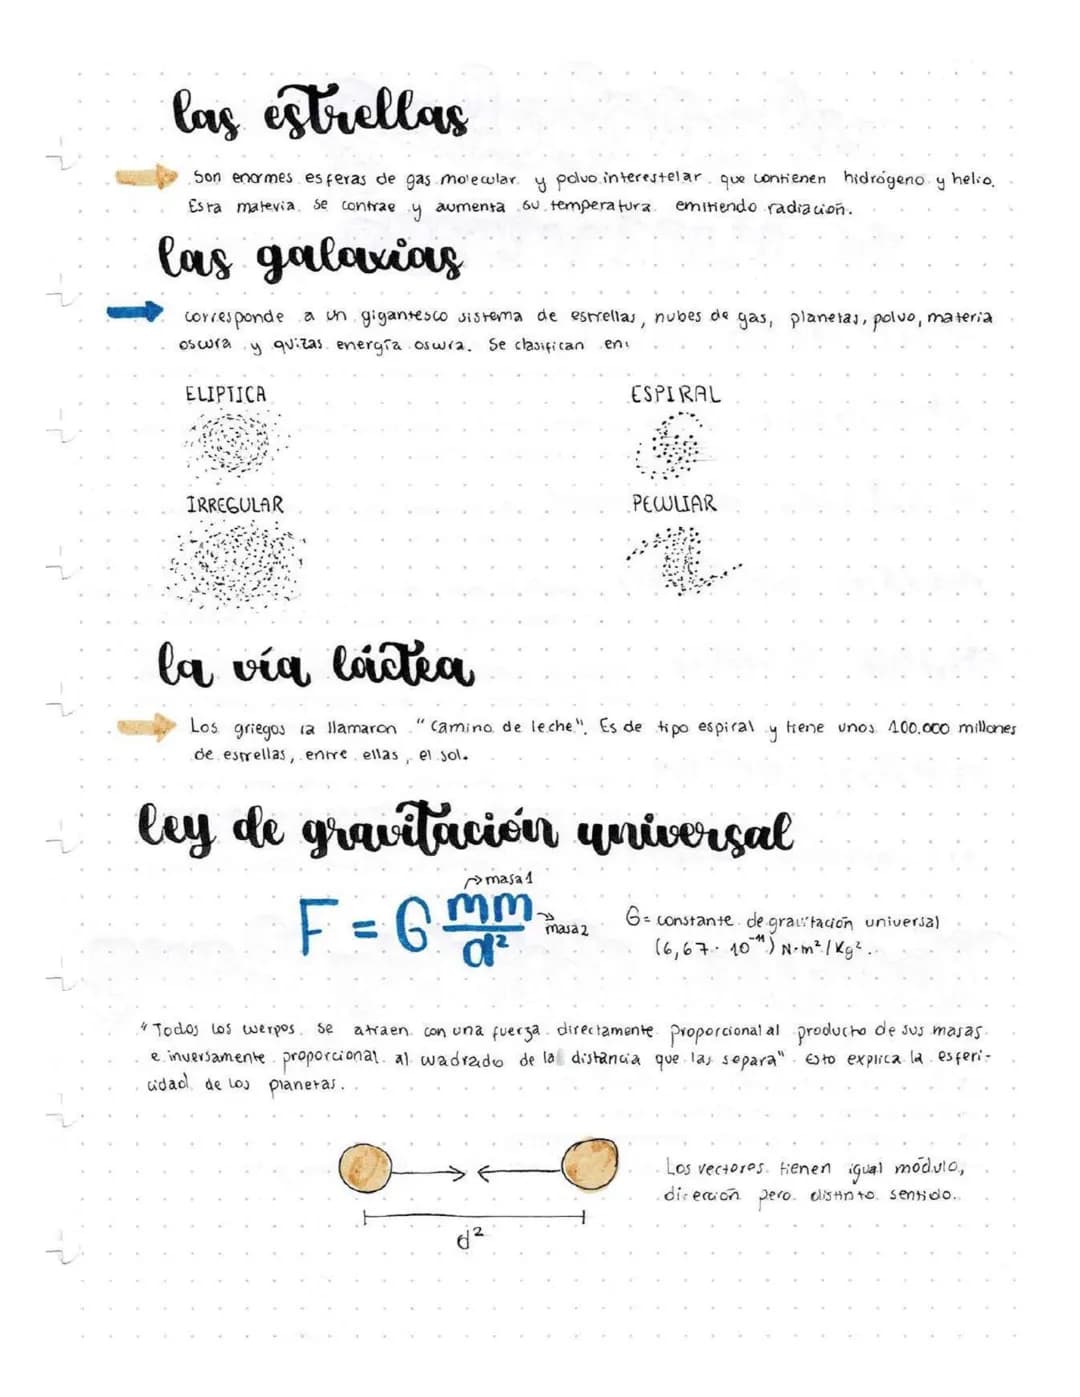 las estrellas
Son enormes esferas de gas molecular y polvo interestelar que contienen hidrógeno y helio.
Esta materia se contrae y aumenta su temperatura emitiendo radiación.
las galaxias
corresponde a un gigantesco sistema de estrellas, nubes de gas, planetas, polvo, materia
oscura y quizas energía oscura. Se clasifican en:
ELIPTICA ESPIRAL
IRREGULAR PECULIAR
la vía láctea
Los griegos la llamaron "Camino de leche". Es de tipo espiral y tiene unos 100.000 millones
de estrellas, entre ellas, el sol.
ley de gravitación universal
masa 1
F = G mm/d²
masa 2
G= constante de gravitación universal
(6,67 · 10⁻¹¹) N·m²/Kg².
"Todos los cuerpos se atraen con una fuerza directamente proporcional al producto de sus masas
e inversamente proporcional al cuadrado de la distancia que las separa" Esto explica la esferi-
cidad de los planetas.
Los vectores tienen igual módulo,
dirección pero distinto sentido.
d²